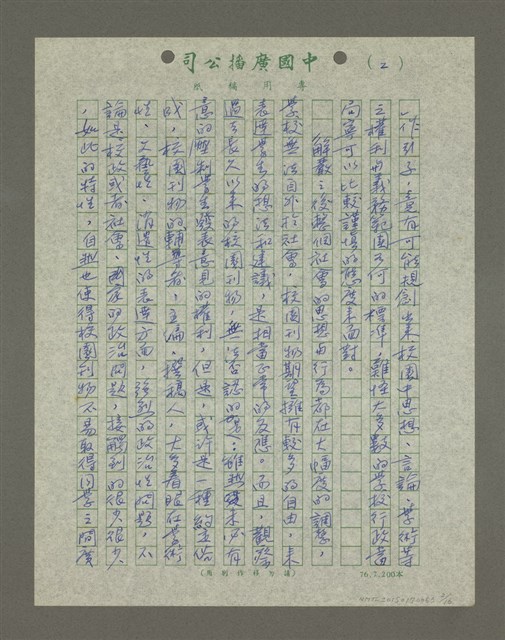 中國廣播公司
(2)
專用稿紙
作引子,竟有可能規劃出來校園中思想、言論、學術等
之權利與義務範圍為何的標準,難怪大多數的學校行政當
局寧可以比較謹慎的態度來面對。
解嚴之後整個社會的思想與行為都在大幅度的調整,
學校無法自外於社會,校園刊物期望擁有較多的自由,來
表達學生的想法和建議,是相當正常的反應。而且,觀察
過去長久以來的校園刊物,無法否認的是:雖然從未必有
意的壓制學生發表意見的權利,但是,或許是一種約定俗
成,校園刊物的輔導者、主編、撰稿人,大多着眼在學術
性、文藝性、消遣性的表達方面,強烈的政治性問題,不
論是校政或者社會、國家的政治問題,接觸到的很少很少
,如此的特性,自然也使得校園刊物不易取得同學之間廣
(請勿移作別用)
76.7.200本